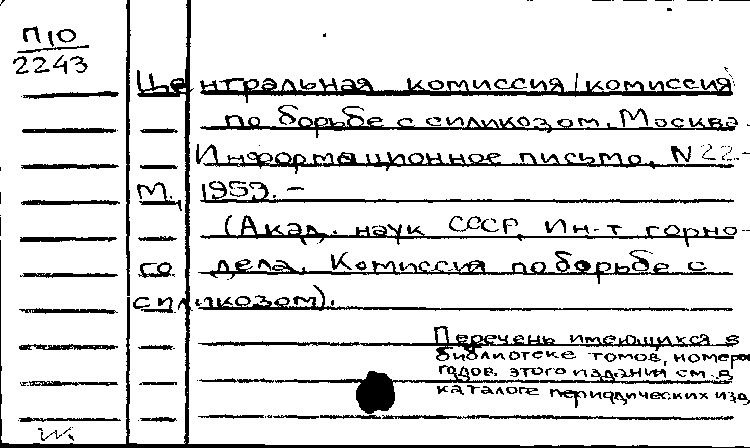 П10
2243
Центральная комиссия/комиссия
по борьбе с силикозом. Москва.
Информационное письмо. N 22-
М., 1959. -
(Акад. наук СССР. Ин-т горно-
го дела. Комиссия по борьбе с
силикозом).
Перечень имеющихся в
библиотеке томов, номеров
годов этого издания см. в
каталоге периодических изд.